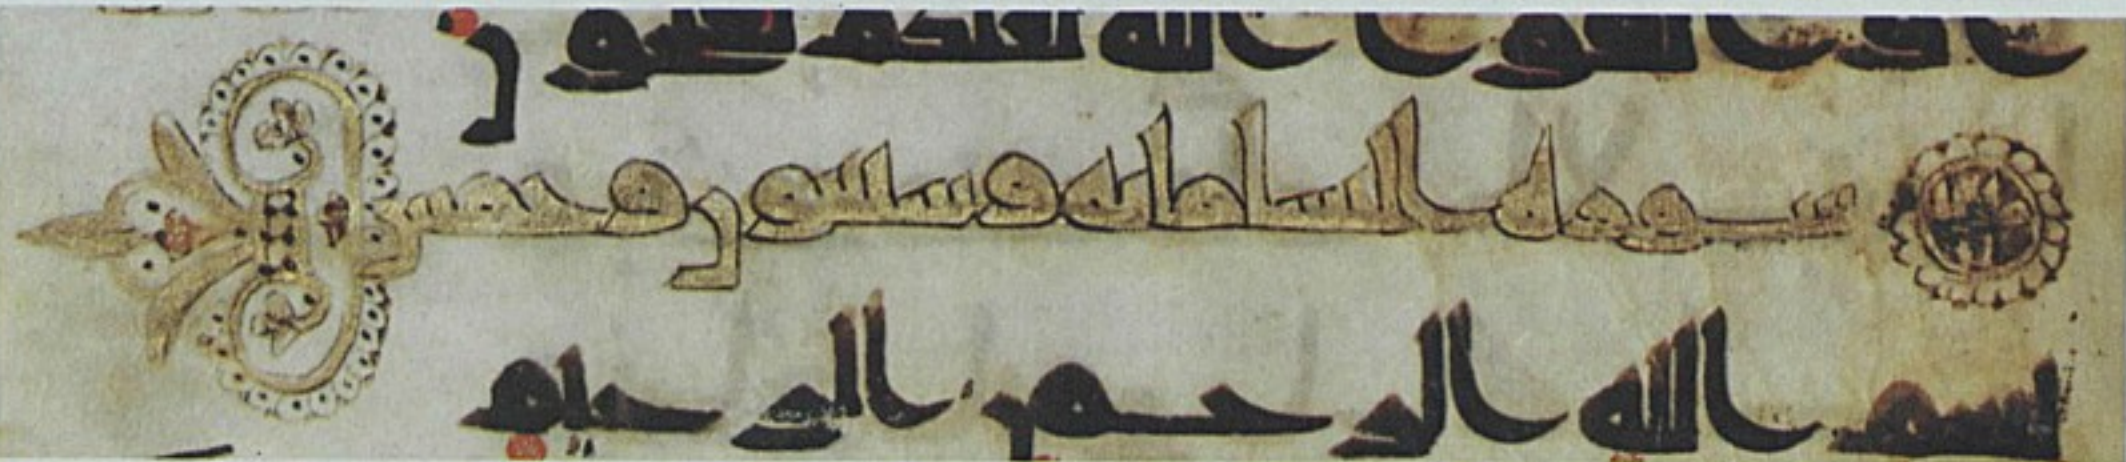 وا تقوا الله لعلكم تفلحون
سورة النسا مائة وسبعون وخمس
بسم الله الرحمن الرحيم